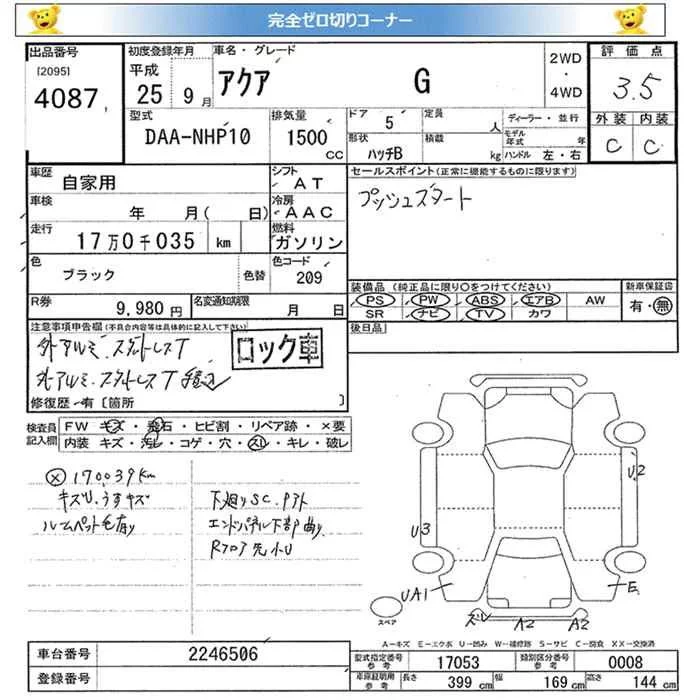 完全ゼロ切りコーナー
出品番号 初度登録年月 車名・グレード 評価点
[2095] 平成 2WD
4087 25 9月 アクア G ・ 3.5
4WD
型式 排気量 ドア 5 定員 人 ディーラー・並行 外装 内装
DAA-NHP10 1500 CC 形状 ハッチB 積載 kg モデル年式 年 C C
ハンドル 左・右
車歴 自家用 シフト AT セールスポイント(正常に機能するものに限ります)
車検 年 月( 日) 冷房 AAC プッシュスタート
走行 17万0千035 km 燃料 ガソリン
色 ブラック 色替 色コード 209
装備品 (純正品に限り○をつけてください) 新車保証書
R券 9,980円 名変通知期限 月 日 PS PW ABS エアB AW 有・無
SR ナビ TV カワ
注意事項申告欄(不具合内容等は具体的に記入して下さい) 後日品
外アルミ.スタットレスT ロック車
ホアルミ.スタットレスT積込
修復歴-有〔箇所 〕
検査員記入欄 FW キズ・飛石・ヒビ割・リペア跡・×要
内装 キズ・汚レ・コゲ・穴・スレ・キレ・破レ
170,039km
キズU.うすキズ 下廻りSC.
ルームペット毛有り エンドパネル下部曲り
Rフロア先小U
U2
U3
UA1 E
ズレ A2 A2
スペア
A−キズ E−エクボ U−凹み W−補修跡 S−サビ C−腐食 XX−交換済
車台番号 2246506 型式指定番号参考 17053 類別区分番号参考 0008
登録番号 車庫証明用参考 長さ 399 cm 幅 169 cm 高さ 144 cm